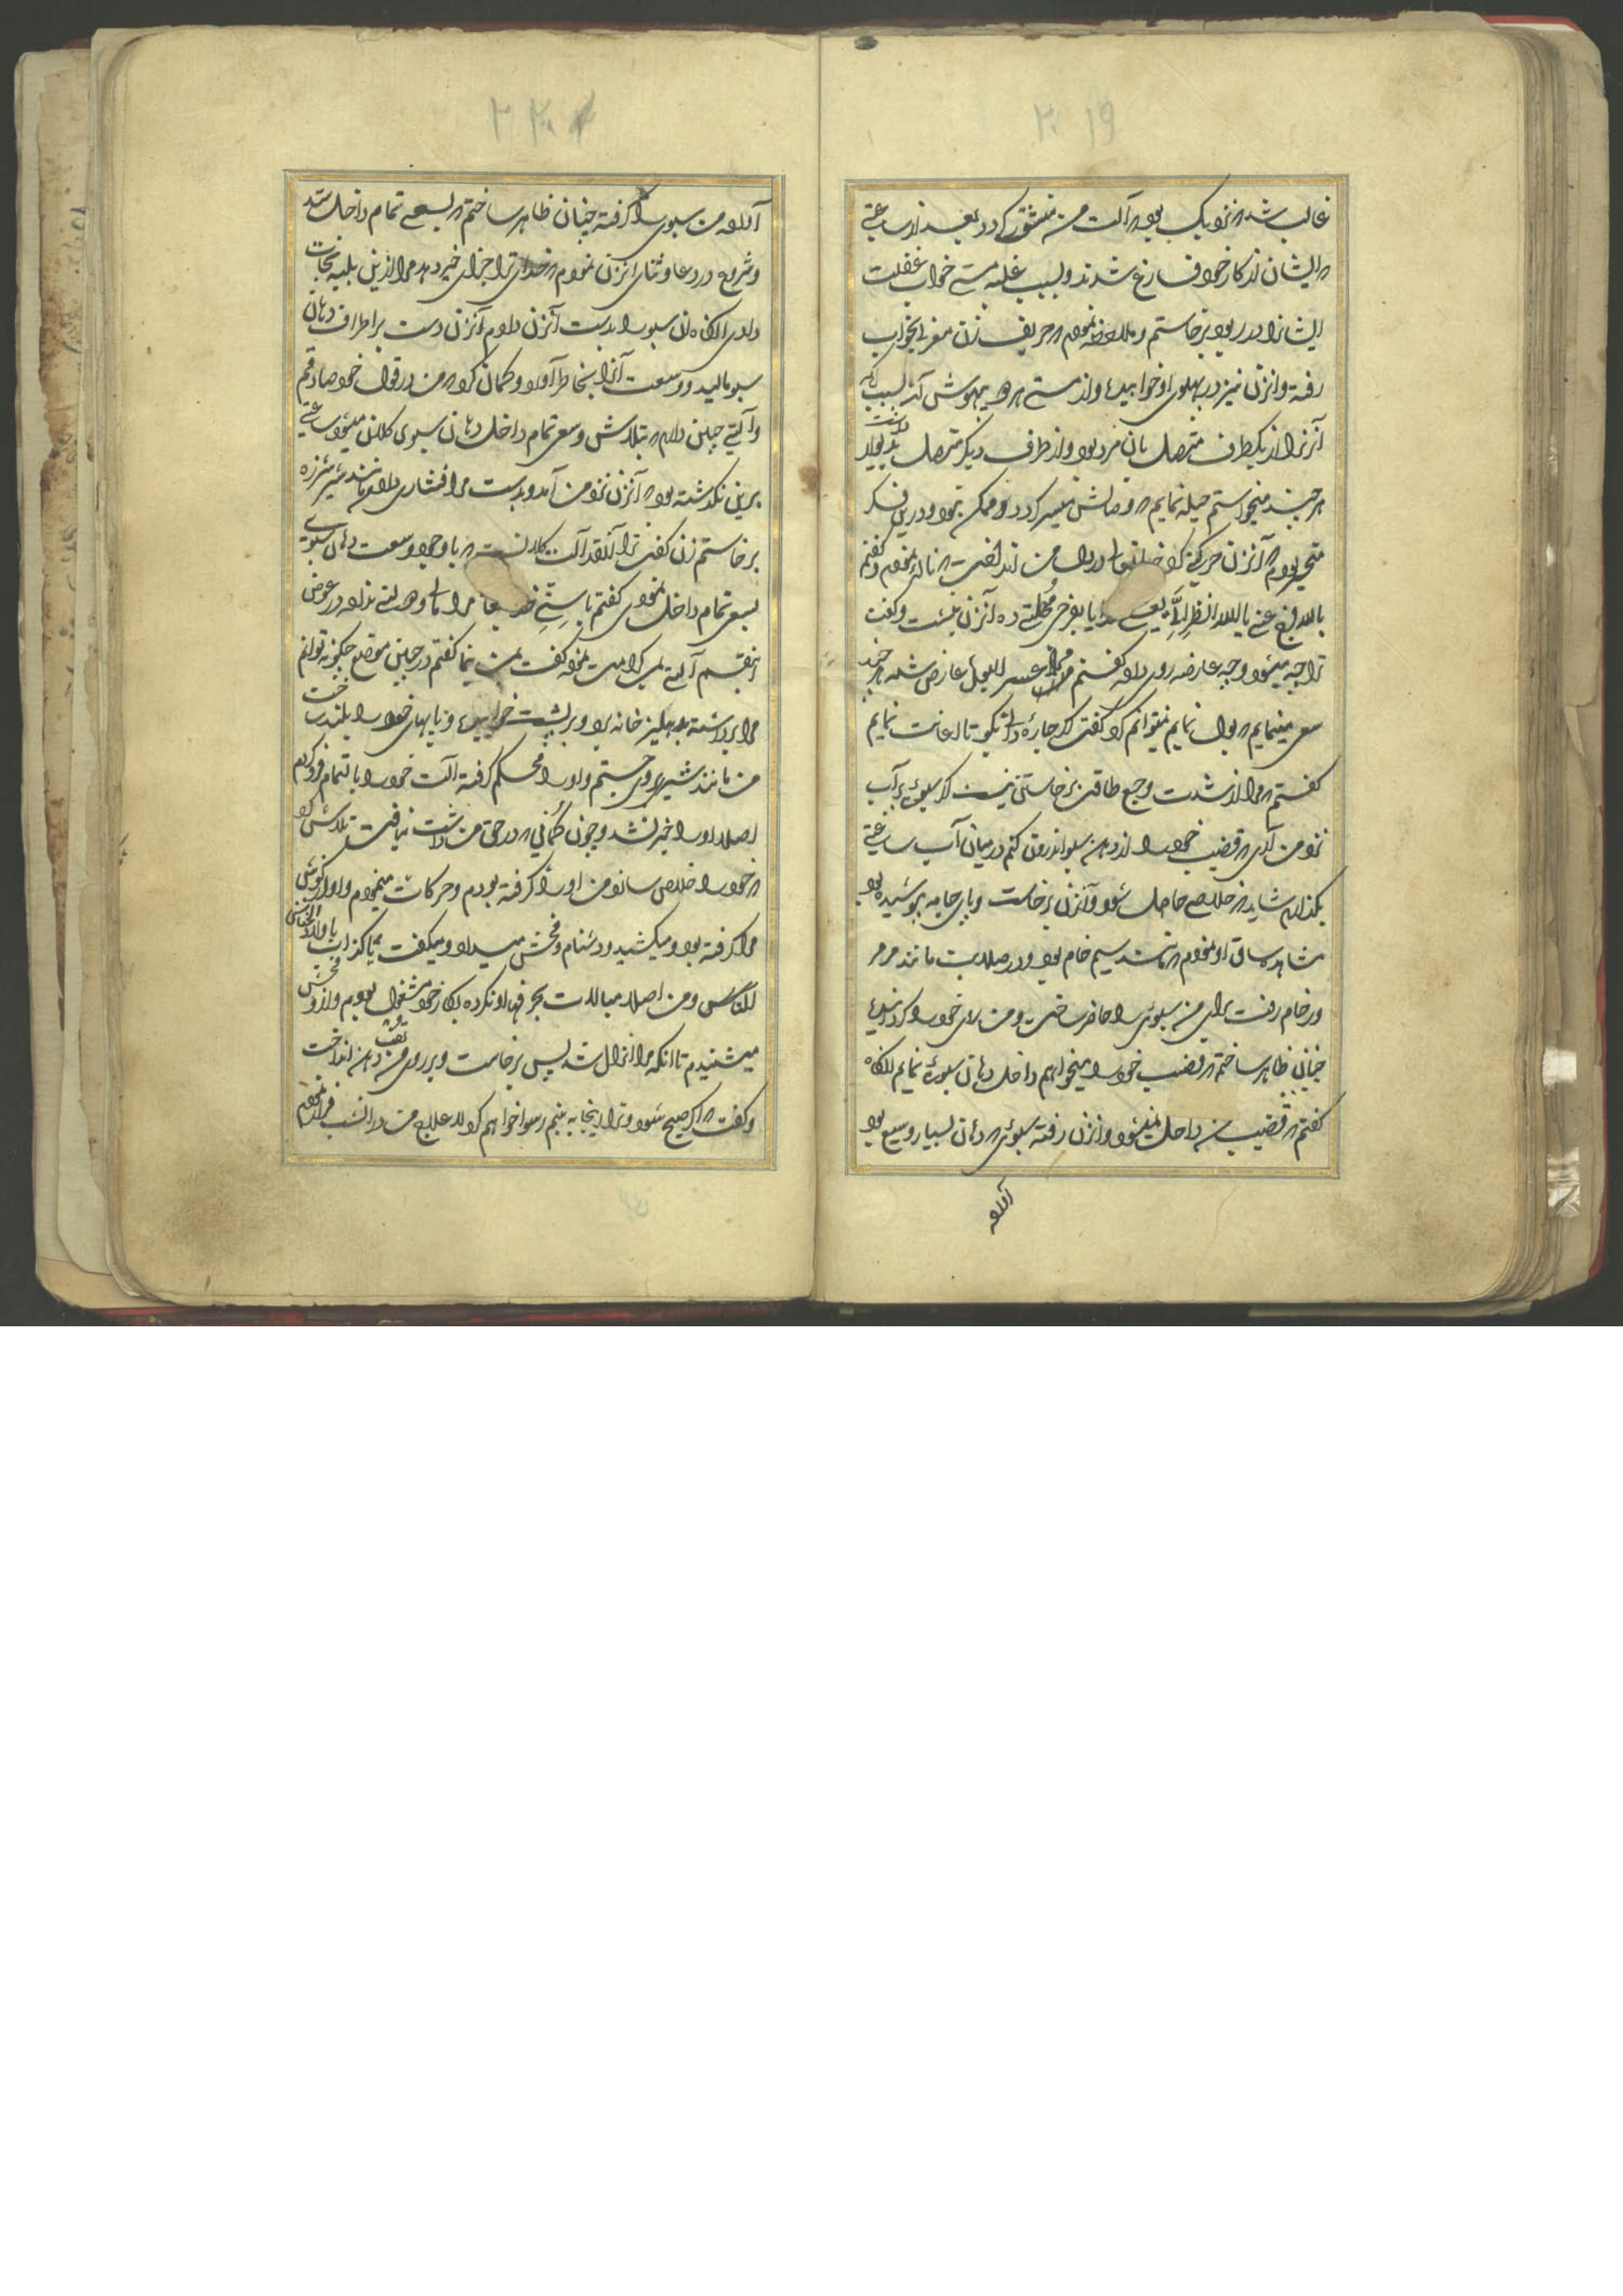 ۲۰۱۹
غالب شد که نزدیک بود که آلت من منشق کردد بعد از ساعتی
که ایشان از کار خود فارغ شدند و بسبب غلبه مستی خواب غفلت
ایشانرا در ربود برخاستم و ملاحظه نمودم که حریف زن مغربی بخواب
رفته و آنزن نیز در پهلوی او خوابیده و از مستی هر دو بیهوش اند بسبب آنکه
آنزن از یکطرف متصل بان مرد بود و از طرف دیگر متصل بدیوار
هر چند میخواستم حیله نمایم که وصالش میسر کردد ممکن نبود و درین فکر
متحیر بودم که آنزن حرکتی کرد در دل من انداخت که ناله نمودم و گفتم
بالله فرج عنی یا الله انظر الی یعنی خدایا بفرج مهلتی ده آنزن بنشست و گفت
ترا چه میشود و چه عارضه روی داده گفتم مرا عسر البول عارض شده هر چند
سعی مینمایم که بول نمایم نمیتوانم کرد گفت اگر چاره دانی بگو تا اعانت نمایم
گفتم که مرا از شدت وجع طاقت برخاستن نیست اگر سبوی پر آب
نزد من آری که قضیب خود را از دهن سبو اندرون کنم در میان آب ساعتی
بگذارم شاید که خلاصی حاصل شود و آنزن برخاست و پای جامه پوشیده بود
مشاهده ساق او نمودم که مانند سیم خام بود و در صلابت مانند مرمر
و رخام رفت برای من سبوی را حاضر ساخت و من روی خود را گردانیده
چنان ظاهر ساختم که قضیب خود را میخواهم داخل دهان سبوی نمایم انگاه
گفتم که قضیب من داخل نمیشود و آنزن رفته سبوی که دهان بسیار وسیع بود
آورده
۲۲۰
آورده من سبوی را گرفته چنان ظاهر ساختم که بسعی تمام داخل شد
و شروع در دعا و ثنای آنزن نمودم که خدای ترا جزای خیر دهد مرا ازین بلیه نجات
دادی انگاه آن سبو را بدست آنزن دادم آنزن دست بر اطراف دهان
سبو مالید و وسعت آنرا بخاطر آورد و گمان کرد که من در قول خود صادقم
و آلتی چنین دارم که بتلاش و سعی تمام داخل دهان سبوی کلان میشود ساعتی
برین نگذشته بود که آنزن نزد من آمد و بدست مرا فشاری داد و مانند شیر شرزه
برخاستم زن گفت ترا آنقدر آلت کلانست که با وجود وسعت دهان سبوی
بسعی تمام داخل نمودی گفتم یا ستی مرا در عوض
اینقسم آلتی بمن کرامت نموده گفت بمن بنما گفتم در چنین موضع چگونه توانم
مرا برداشته بدهلیز خانه برد و بر پشت خوابیده و پایهای خود را بلند ساخت
من مانند شیر بر وی جستم و او را محکم گرفته آلت خود را بالتمام فرو کردم
اصلا او را خبر نشد و چون گمانی که در حق من داشت نیافت تلاش کرد
که خود را خلاص سازد من او را گرفته بودم و حرکات مینمودم و او گوش
مرا گرفته بود و میکشید و دشنام و فحش میداد و میگفت یا کذاب یا ولد الخناس
الکناس و من اصلا مبالات بحرفهای او نکرده بکار خود مشغول بودم و از او فحش
میشنیدم تا انکه مرا انزال شد پس برخاست و بر روی من تف دهن انداخت
و گفت که اگر صبح شود و ترا اینجا به بینم رسوا خواهم کرد لا علاج من در انشب فرار نمودم